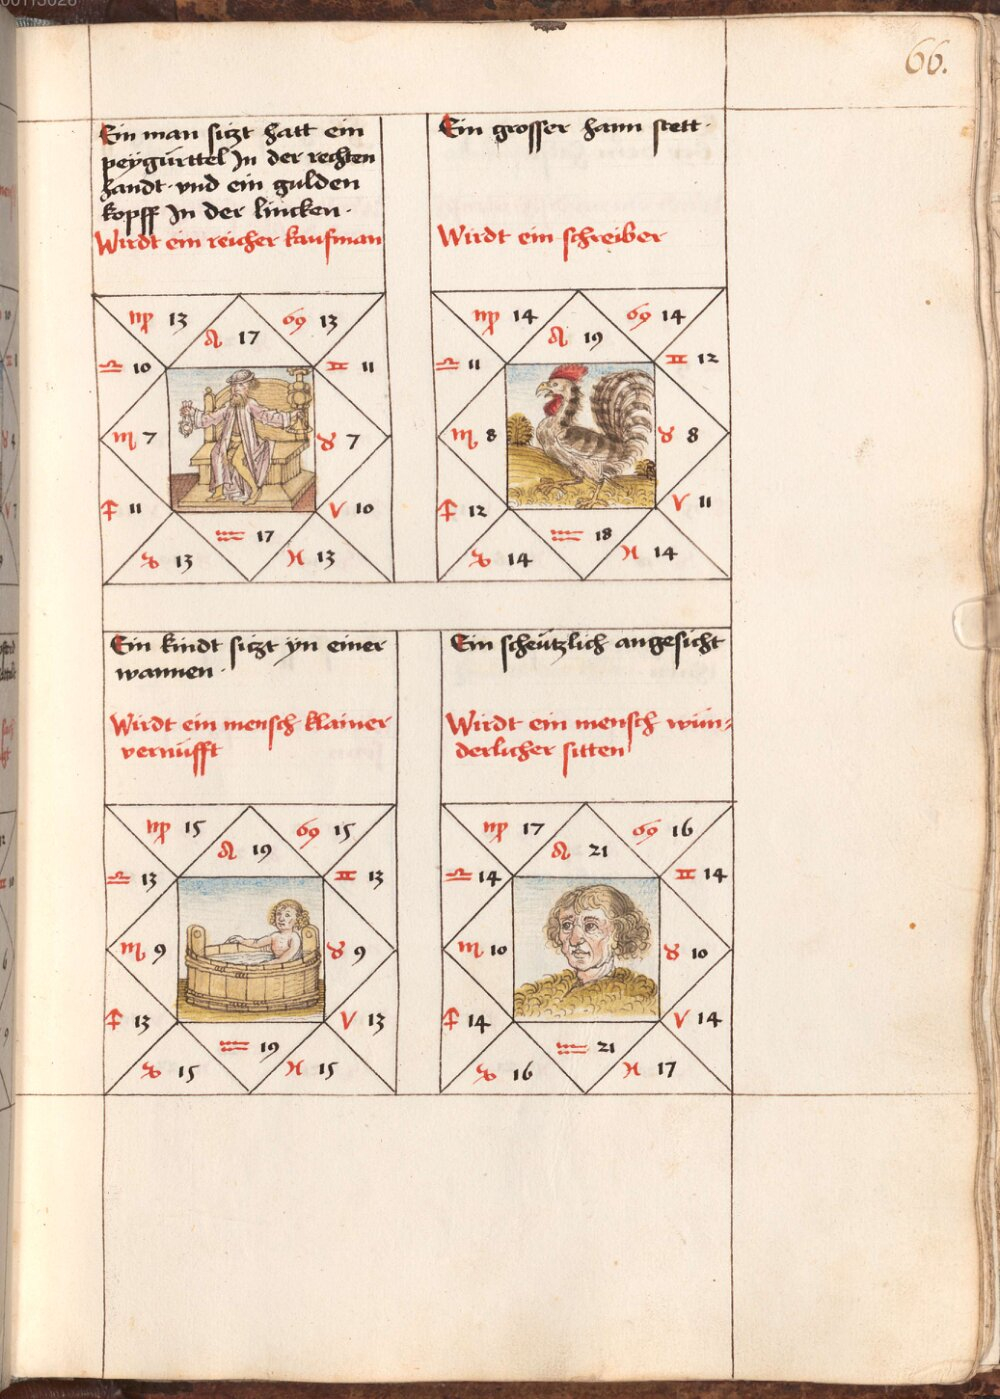 66.
Ein man sitzt hatt ein
peygürttel In der rechten
handt · vnd ein gulden
kopff In der lincken ·
Wirdt ein reicher kaufman
♍ 13 ♌ 17 ♋ 13
♎ 10 ♊ 11
♏ 7 ♉ 7
♐ 11 ♈ 10
♑ 13 ♒ 17 ♓ 13
Ein grosser hann stett ·
Wirdt ein schreiber
♍ 14 ♌ 19 ♋ 14
♎ 11 ♊ 12
♏ 8 ♉ 8
♐ 12 ♈ 11
♑ 14 ♒ 18 ♓ 14
Ein kindt sitzt ÿn einer
wannen ·
Wirdt ein mensch klainer
vernüfft
♍ 15 ♌ 19 ♋ 15
♎ 13 ♊ 13
♏ 9 ♉ 9
♐ 13 ♈ 13
♑ 15 ♒ 19 ♓ 15
Ein scheützlich angesicht
Wirdt ein mensch wün=
derlicher sitten
♍ 17 ♌ 21 ♋ 16
♎ 14 ♊ 14
♏ 10 ♉ 10
♐ 14 ♈ 14
♑ 16 ♒ 21 ♓ 17